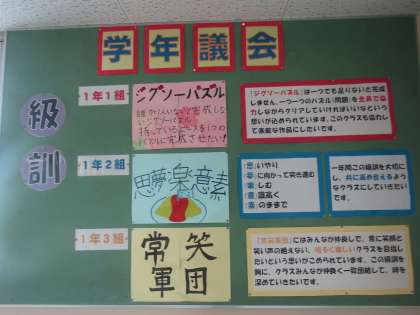 学年議会
級訓
1年1組
ジグソーパズル
誰か1人いないと完成しない
ジグソーパズル
持っているピースを1つの
パズルに完成させたい!
「ジグソーパズル」は一つでも足りないと完成
しません。一つ一つのパズル(問題)を全員で協
力しながらクリアしていければいいなという
想いが込められています。このクラスも協力し
て素敵な作品にしたいです。
1年2組
思夢楽意素
思いやり
夢に向かって突き進む
楽しむ
意識高く
素のままで
一年間この級訓を大切に
し、共に高め合えるよう
なクラスにしていきたい
です。
1年3組
常笑
軍団
「常笑軍団」にはみんな仲良しで、常に笑顔と
笑い声の絶えない、明るく楽しいクラスを目指
したいという思いがこめられています。この級訓を
胸に、クラスみんな仲良く一致団結して、絆を
深めていきたいです。